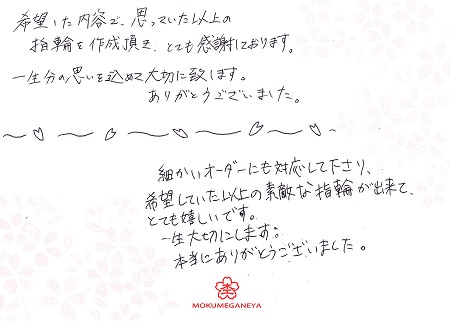 希望した内容で、思っていた以上の
指輪を作成頂き、とても感謝しております。
一生分の思いを込めて大切に致します。
ありがとうございました。
細かいオーダーにも対応して下さり、
希望していた以上の素敵な指輪が出来て、
とても嬉しいです。
一生大切にします。
本当にありがとうございました。
MOKUMEGANEYA